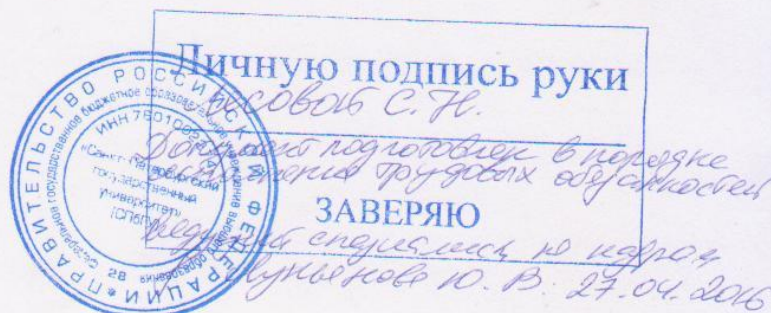 Личную подпись руки
С. Н.
Документ подготовлен в порядке
исполнения трудовых обязанностей
ЗАВЕРЯЮ
Ведущий специалист по кадрам
Ю. В. 27.04.2016
ПРАВИТЕЛЬСТВО РОССИЙСКОЙ ФЕДЕРАЦИИ
Федеральное государственное бюджетное образовательное учреждение высшего образования
ИНН
«Санкт-Петербургский
государственный
университет»
(СПбГУ)
2В